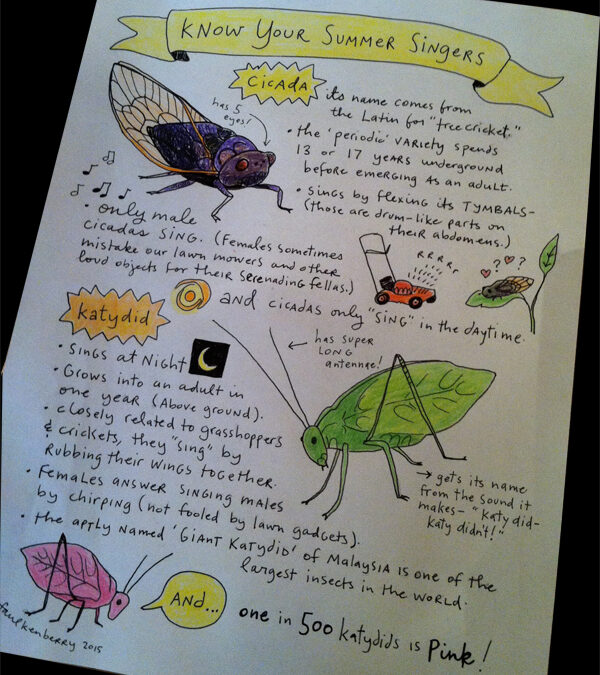 Know Your Summer Singers
Cicada
its name comes from
the Latin for "tree cricket."
has 5
eyes!
• the 'periodic' variety spends
13 or 17 years underground
before emerging as an adult.
• sings by flexing its TYMBALS-
(those are drum-like parts on
their abdomens.)
• only male
cicadas sing. (Females sometimes
mistake our lawn mowers and other
loud objects for their serenading fellas.)
RRRRr
? ?
and cicadas only "sing" in the daytime.
Katydid
• Sings at Night
• Grows into an adult in
one year (Above ground).
• closely related to grasshoppers
& crickets, they "sing" by
Rubbing their wings together.
• Females answer singing males
by chirping (not fooled by lawn gadgets).
• the aptly named 'Giant Katydid' of Malaysia is one of the
largest insects in the world.
has super
long
antennae!
→ gets its name
from the sound it
makes- "katy did-
katy didn't!"
AND...
one in 500 katydids is Pink!
faulkenberry 2015